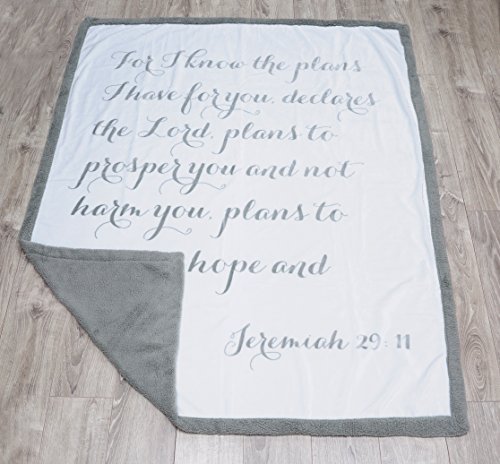 For I know the plans
I have for you, declares
the Lord, plans to
prosper you and not
harm you, plans to
hope and
Jeremiah 29:11